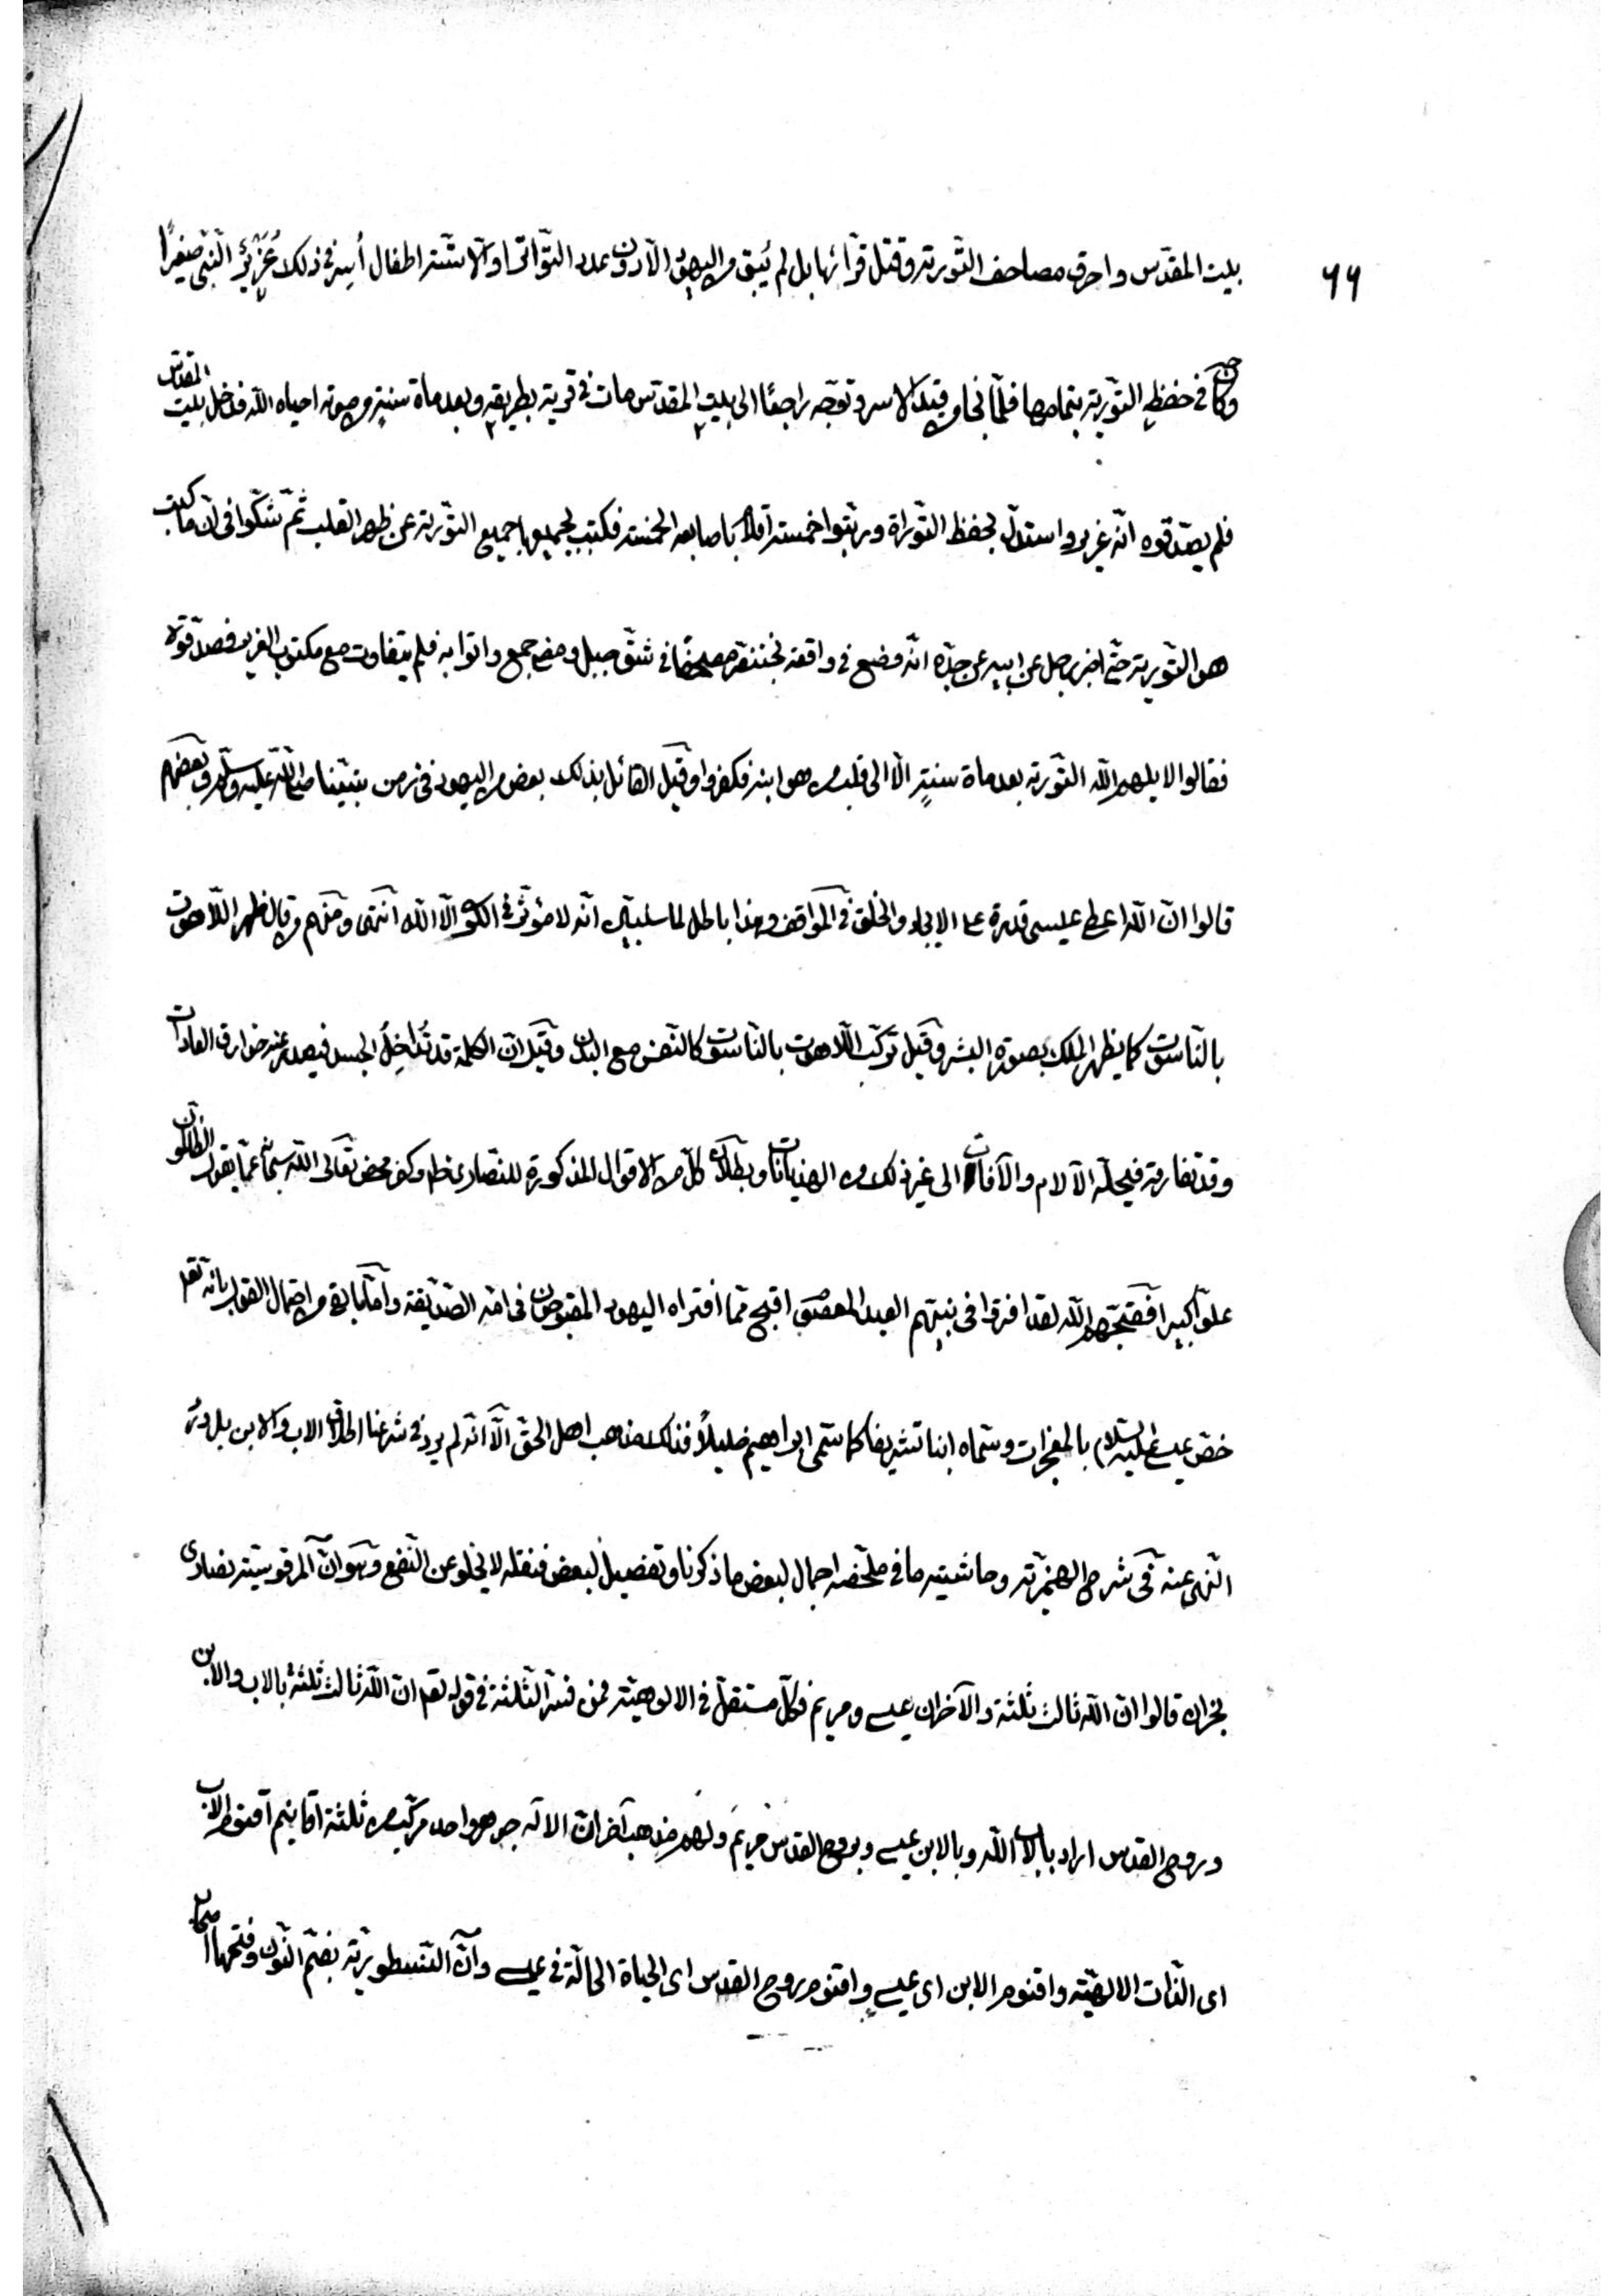 ٦٦
بيت المقدس واحرق مصاحف التورية وقتل قرّائها بل لم يُبق من اليهود الّا دون عدد التواتر او الّا ستة اطفال أسِر في ذلك عُزَيْرٌ النبي صغيرًا
وكان في حفظه التورية بتمامها فلمّا نجا من قيد الاسر وتوجّه راجعًا الى بيت المقدس مات في قرية بطريقه وبعد مأة سنةٍ من موته احياه الله فدخل بيت المقدس
فلم يصدّقوه انّه عزير واستدلّ بحفظ التوراة وربّبوا خمسة أقلام باصابعه الخمسة فكتب بجميعها جميع التورية عن ظهر القلب ثمّ شكّوا في انّ ما كتب
هو التورية حتّى اخبر رجل عن ابيه عن جدّه انّه وضع في واقعة بختنصّر مصحفًا في شقّ جبل وضع جمع واتوا به فلم يتفاوت مع مكتوب العزير فصدّقوه
فقالوا لا يلهم الله التورية بعد مأة سنةٍ الّا الى قلب من هو ابنه فكفروا وقيل القائل بذلك بعض من اليهود في زمن نبيّنا صلى الله عليه وسلم وبعضهم
قالوا انّ الله اعطى عيسى قدرة على الايجاد والخلق في المواقف وهذا باطل لما سنبيّن انّه لا مؤثّر في الكون الّا الله انتهى ومنهم من قال ظهر اللّاهوت
بالنّاسوت كما يظهر الملك بصورة البشر وقيل تركّب اللّاهوت بالنّاسوت كالنّفس مع البدن وقيل انّ الكلمة قد تُداخِلُ الجسد فيصدر عنه خوارق العادات
وقد تفارقه فيحلّه الآلام والآفات الى غير ذلك من الهذيانات وبطلان كلّ من الاقوال المذكورة للنّصارى خطأ وكفر محض تعالى الله سبحانه عمّا يقول الظالمون
علوّا كبيرا فقبّحهم الله لقد افترا في نبيّهم العبد المعصوم اقبح ممّا افتراه اليهود المقبوحون في امّه الصدّيقة وامّا ما بقي من احتمال القول بانّه تعالى
خصّ عيسى عليه السلام بالمعجزات وسمّاه ابنا تشريفا كما سمّى ابراهيم خليلاً فذاك مذهب اهل الحقّ الّا انّه لم يرد في شرعنا اطلاق الاب والابن بل ورد
النّهي عنه في شرح الهمزيّة وحاشيته ما في ملخّصه اجمال لبعض ما ذكرنا وتفصيل لبعض فنقله لا يخلو عن النّفع وهو انّ المرقوسيّة نصارى
نجران قالوا انّ الله ثالث ثلثة والآخران عيسى ومريم فكلّ مستقلّ في الالوهيّة فمن فسّر الثلثة في قوله تعالى ان الله ثالث ثلثة بالاب والابن
وروح القدس اراد بالاب الله وبالابن عيسى وبروح القدس مريم ولهم مذهب آخر انّ الاله جوهر واحد مركّب من ثلثة اقانيم اقنوم الاب
اى الذّات الالهيّة واقنوم الابن اى عيسى واقنوم روح القدس اى الحياة الحالّة في عيسى وانّ النّسطوريّة بضمّ النّون وفتحها